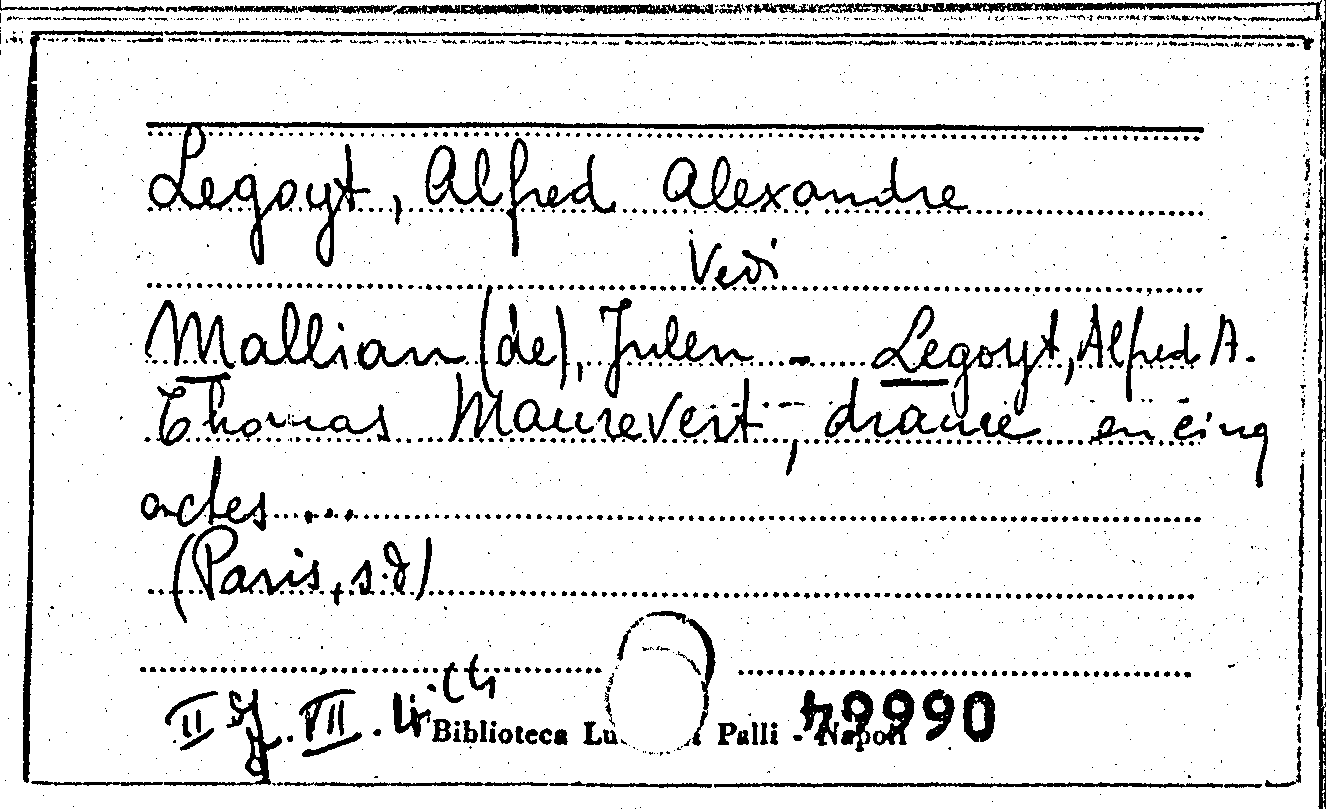 Legoyt, Alfred Alexandre
Vedi
Mallian (de), Julen - Legoyt, Alfred A.
Thomas Maurevert, drame en cinq
actes ...
(Paris, s.d)
II . VII .
Biblioteca Lu Palli - Napoli
49990